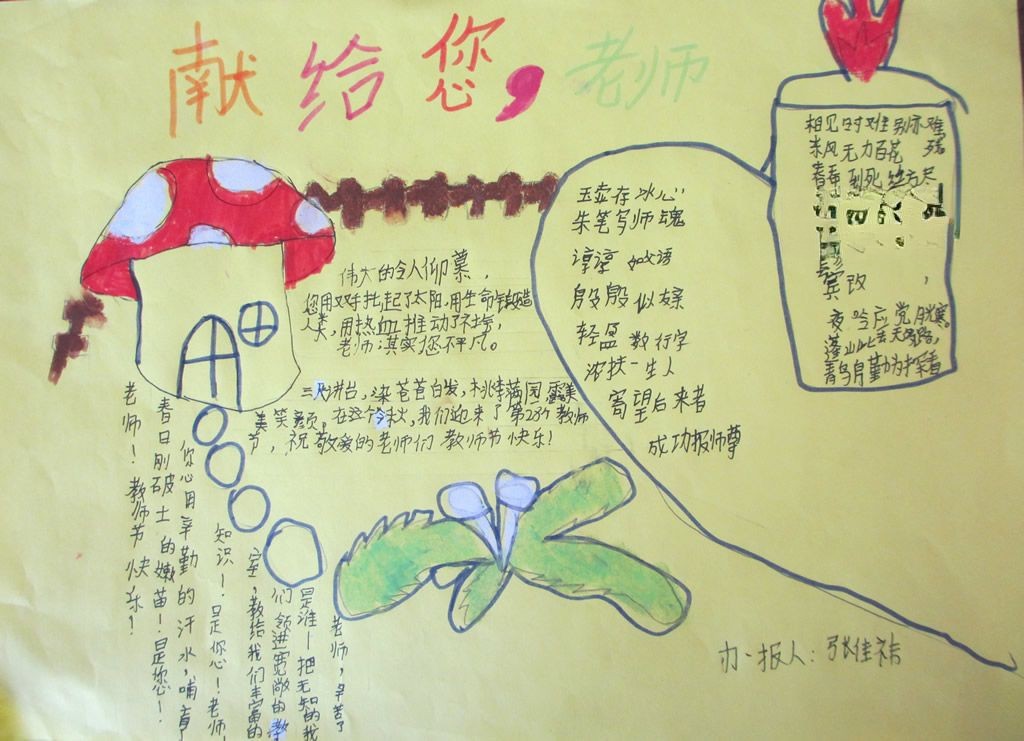 献给您，老师
相见时难别亦难
东风无力百花残
春蚕到死丝方尽
夜吟应觉月光寒。
蓬山此去无多路，
青鸟殷勤为探看
玉壶存冰心
朱笔写师魂
谆谆如父语
殷殷似友亲
轻盈数行字
浓抹一生人
寄望后来者
成功报师尊
伟大的令人仰慕，
您用双手托起了太阳,用生命铸造
人类，用热血推动了社会，
老师:其实您不平凡。
三尺讲台，染苍苍白发，桃李满园露美
美笑颜，在这个金秋，我们迎来了第28个教师
节，祝敬爱的老师们教师节快乐！
老师，辛苦了
是谁一把无知的我
们领进宽敞的教
室，教给我们丰富的
知识！是你心！老师，
你心用辛勤的汗水，哺育
春日刚破土的嫩苗！是您！
老师！教师节快乐！
办报人：张佳祎